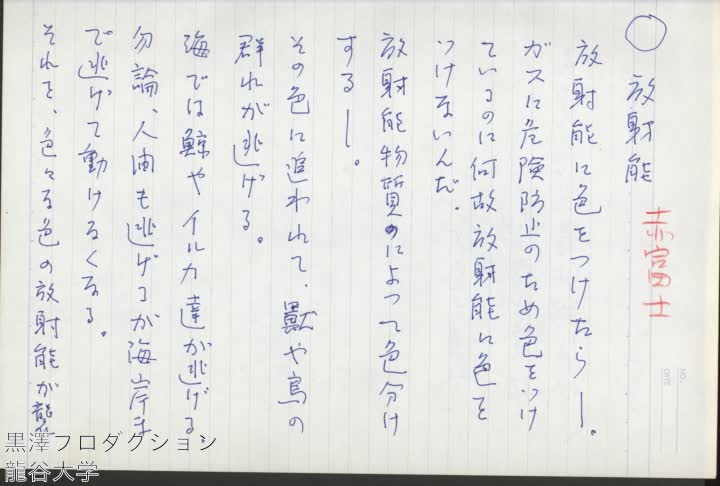 ○ 放射能
赤富士
放射能に色をつけたら─。
ガスに危険防止のため色をつけ
ているのに何故放射能に色を
つけないんだ。
放射能物質のによって色分け
する─。
その色に追われて、獣や鳥の
群れが逃げる。
海では鯨やイルカ達が逃げる
勿論、人間も逃げるが海岸ま
で逃げて動けなくなる。
それを、色々な色の放射能が襲
NO.
DATE
黒澤プロダクション
龍谷大学